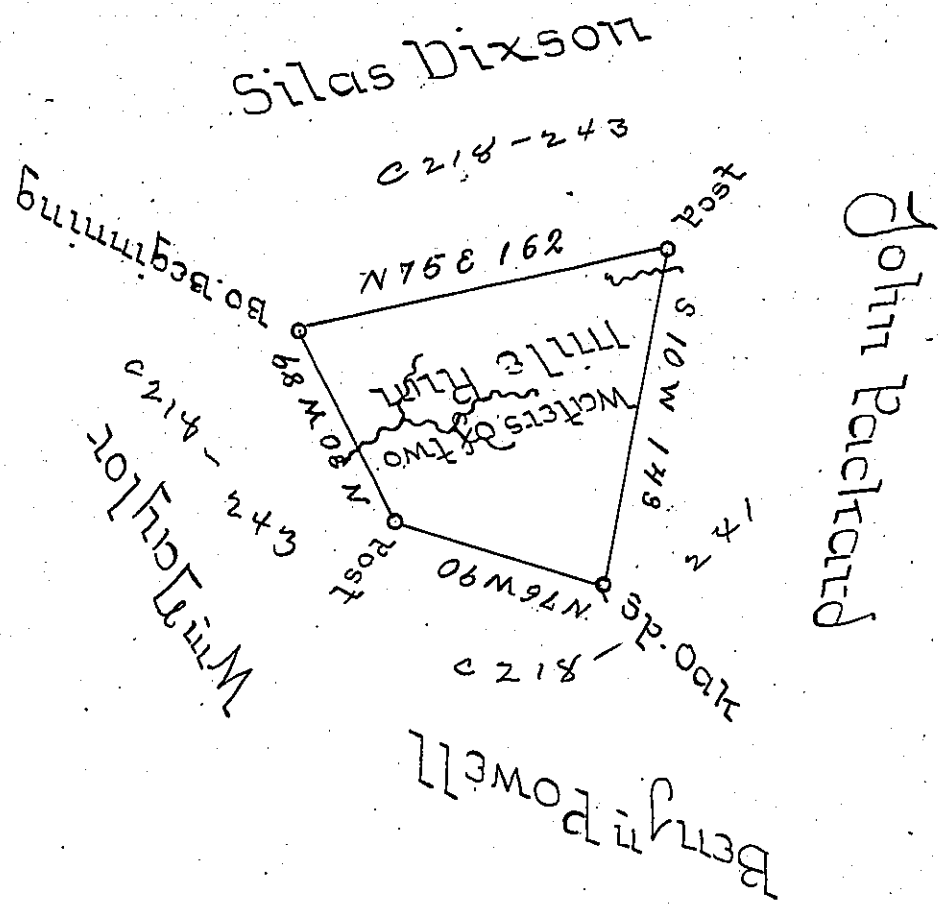 Silas Dixson
C 218-243
Post
John Packard
N75E 162
Bo. Beginning
S 10 W 149
Waters of two
mile Run
N 30 W 89
C 218-243
Wm Taylor
Post
N76W90
Sp. Oak
C 218-241
Benjn Powell